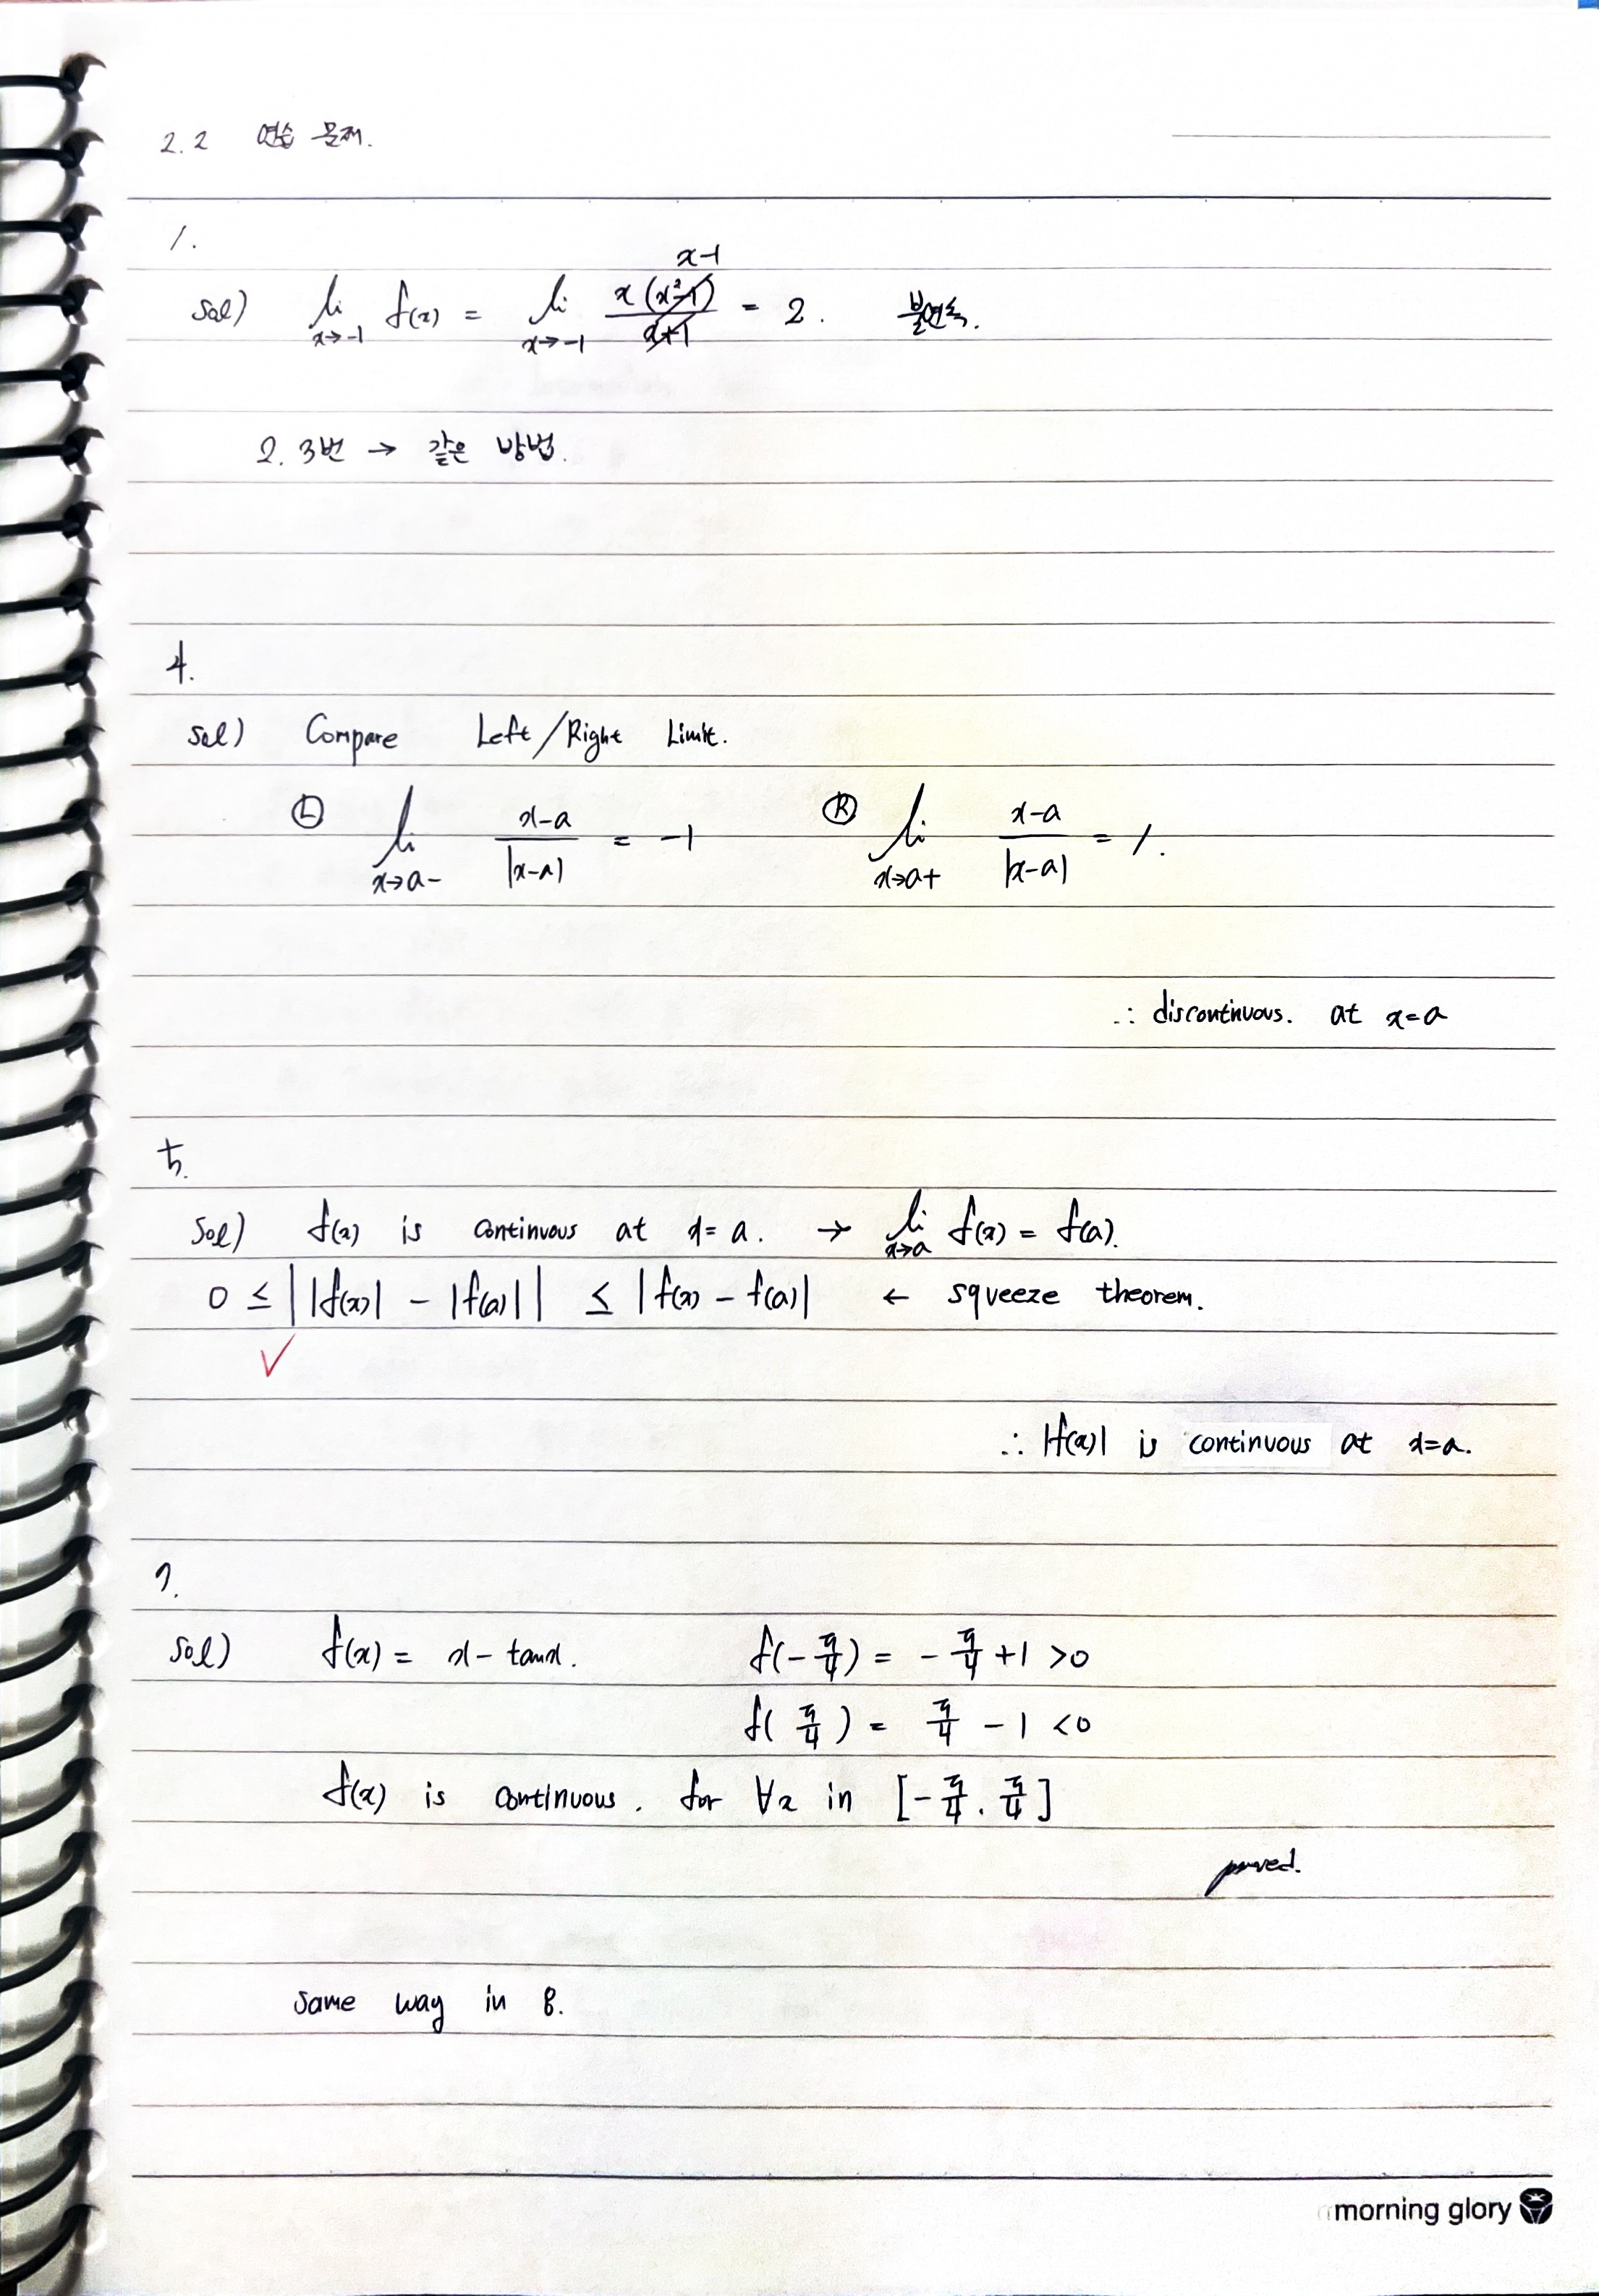 2.2 연습 문제.
1.
sol) lim x→-1 f(x) = lim x→-1 x(x²-1)/x+1 x-1 = 2. 불연속.
2. 3번 → 같은 방법.
4.
sol) Compare Left/Right Limit.
Ⓛ lim x→a- x-a/|x-a| = -1 Ⓡ lim x→a+ x-a/|x-a| = 1.
∴ discontinuous. at x=a
5.
sol) f(x) is continuous at x=a. → lim x→a f(x) = f(a).
0 ≤ | |f(x)| - |f(a)| | ≤ |f(x) - f(a)| ← squeeze theorem.
✓
∴ |f(x)| is continuous at x=a.
7.
sol) f(x) = x - tanx. f(-π/4) = -π/4 + 1 >0
f(π/4) = π/4 - 1 <0
f(x) is continuous. for ∀x in [-π/4, π/4]
proved.
same way in 8.
morning glory